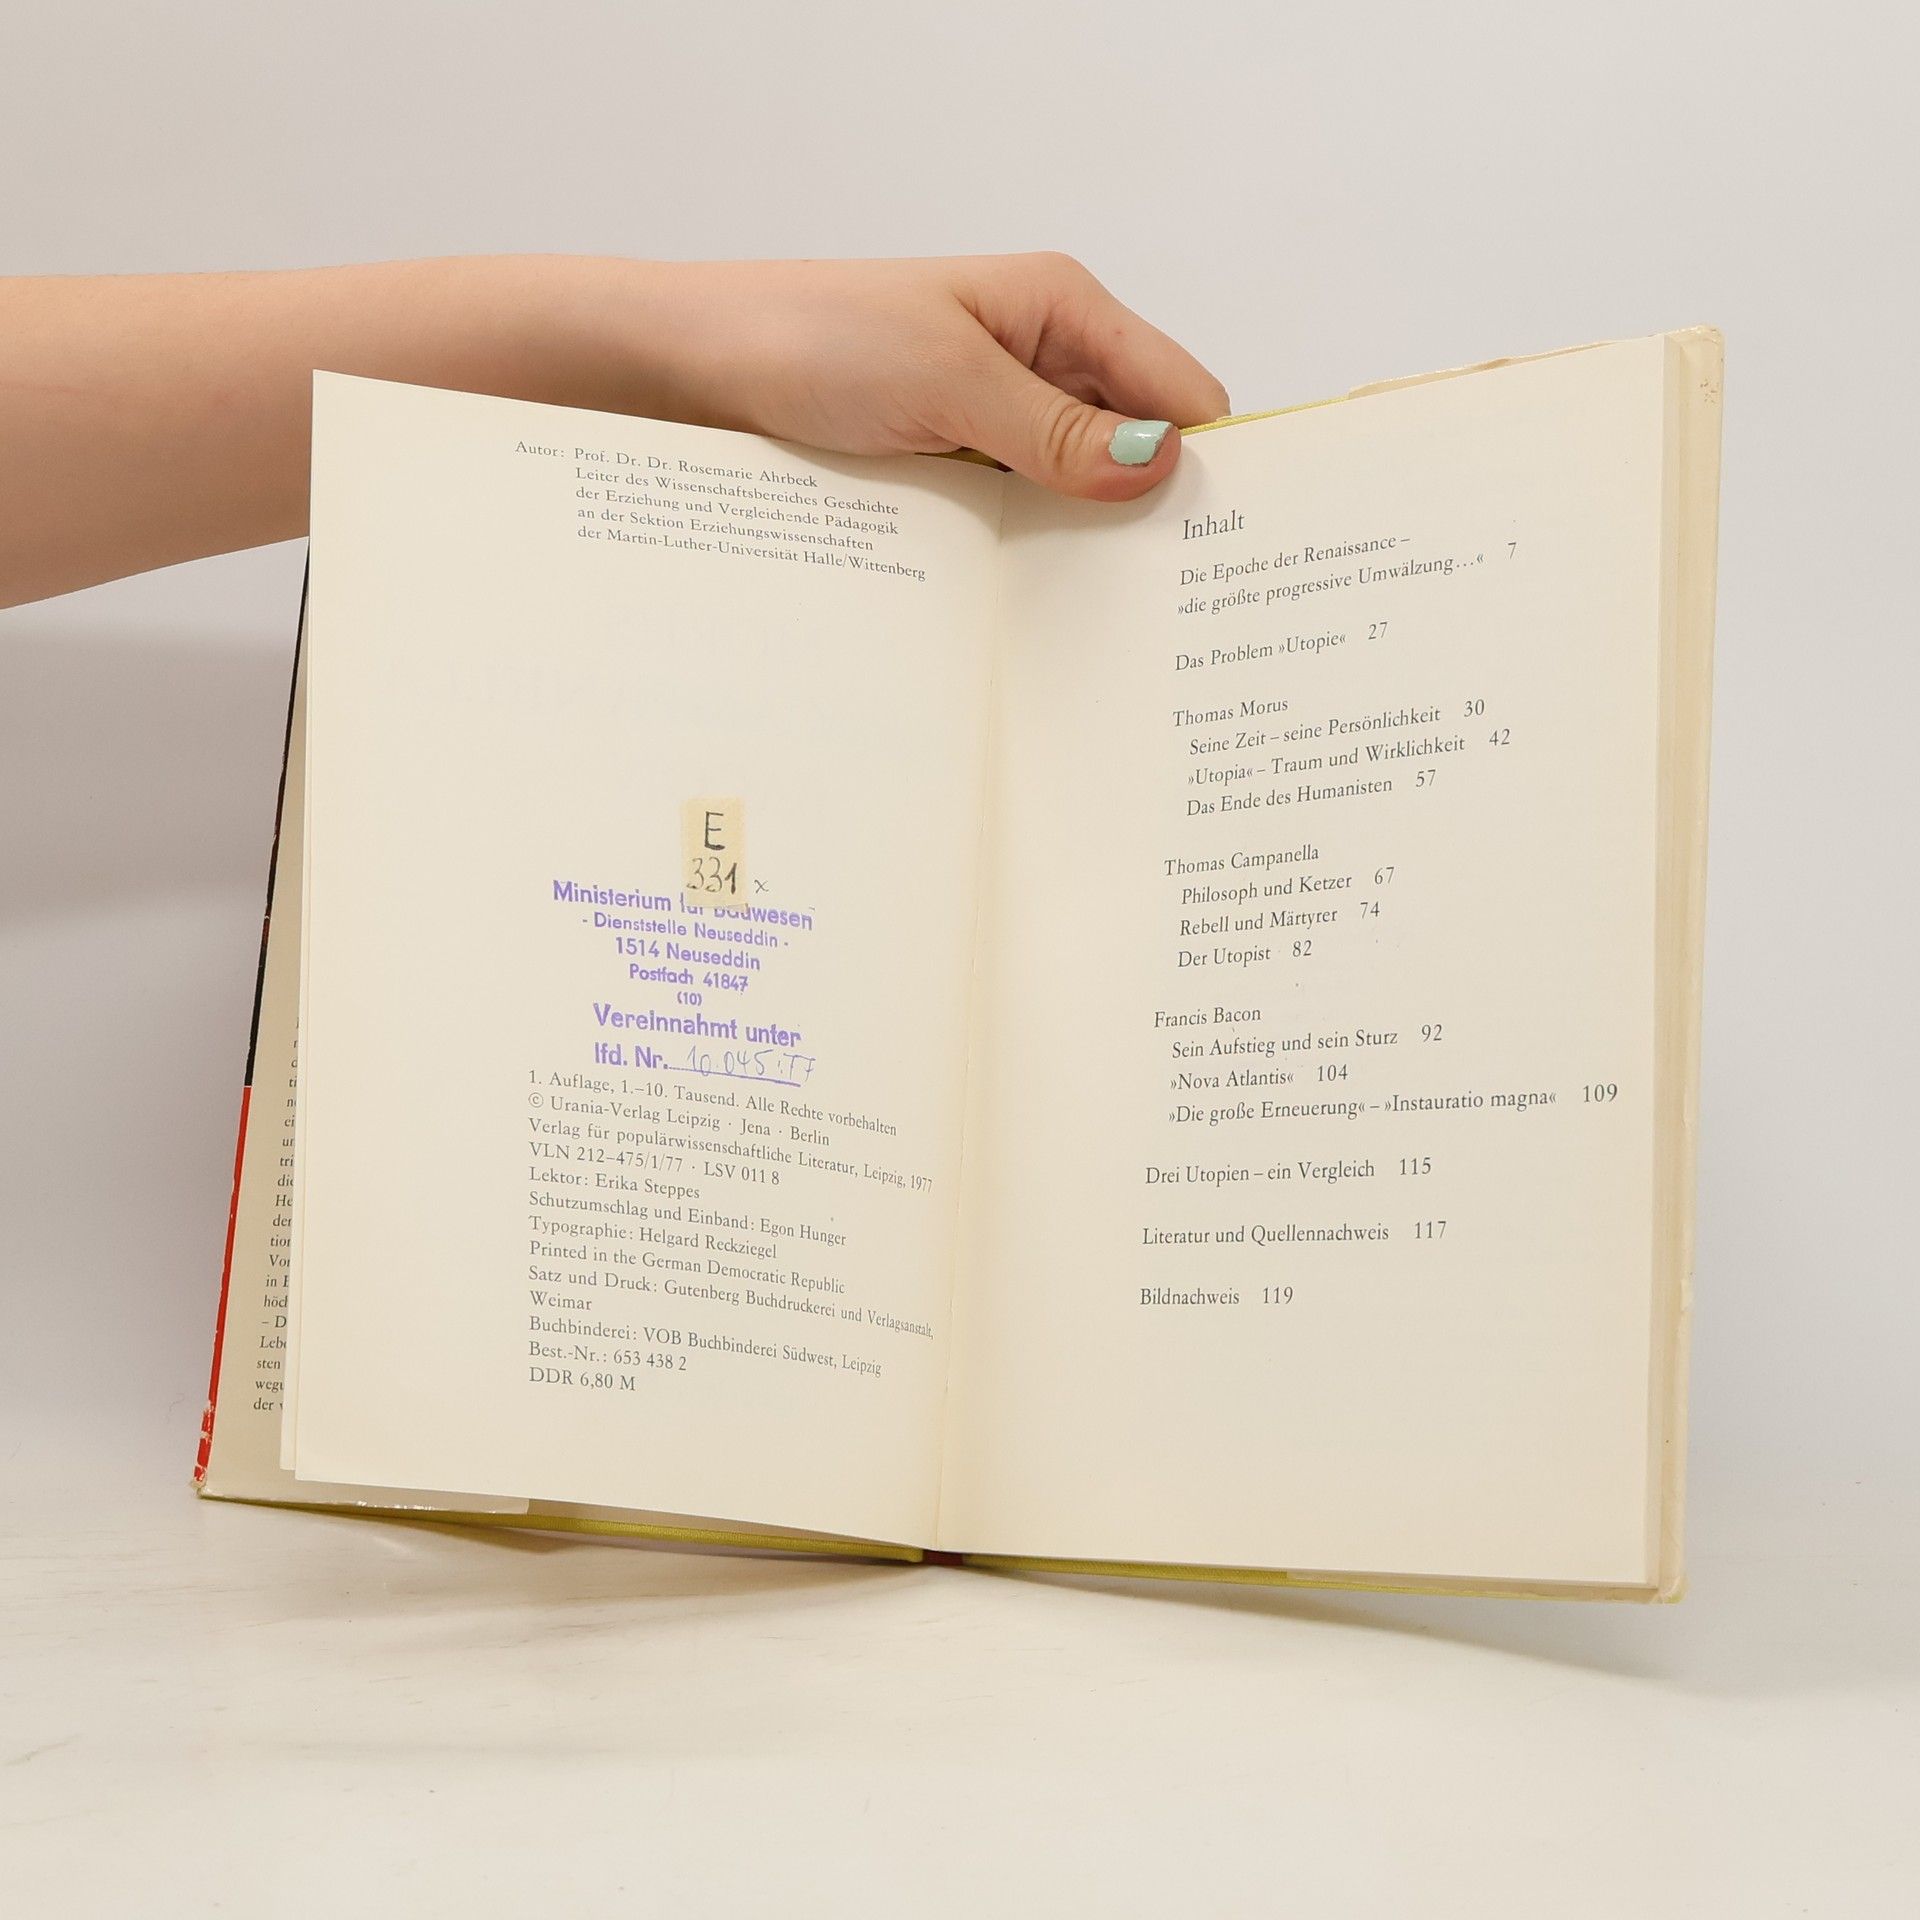 Autor: Prof. Dr. Dr. Rosemarie Ahrbeck
Leiter des Wissenschaftsbereiches Geschichte
der Erziehung und Vergleichende Pädagogik
an der Sektion Erziehungswissenschaften
der Martin-Luther-Universität Halle/Wittenberg
E
331 x
Ministerium für Bauwesen
- Dienststelle Neuseddin -
1514 Neuseddin
Postfach 41847
(10)
Vereinnahmt unter
lfd. Nr. 10.045
1. Auflage, 1.–10. Tausend. Alle Rechte vorbehalten
© Urania-Verlag Leipzig · Jena · Berlin
Verlag für populärwissenschaftliche Literatur, Leipzig, 1977
VLN 212–475/1/77 · LSV 011 8
Lektor: Erika Steppes
Schutzumschlag und Einband: Egon Hunger
Typographie: Helgard Reckziegel
Printed in the German Democratic Republic
Satz und Druck: Gutenberg Buchdruckerei und Verlagsanstalt,
Weimar
Buchbinderei: VOB Buchbinderei Südwest, Leipzig
Best.-Nr.: 653 438 2
DDR 6,80 M
Inhalt
Die Epoche der Renaissance –
»die größte progressive Umwälzung...« 7
Das Problem »Utopie« 27
Thomas Morus
Seine Zeit – seine Persönlichkeit 30
»Utopia« – Traum und Wirklichkeit 42
Das Ende des Humanisten 57
Thomas Campanella
Philosoph und Ketzer 67
Rebell und Märtyrer 74
Der Utopist 82
Francis Bacon
Sein Aufstieg und sein Sturz 92
»Nova Atlantis« 104
»Die große Erneuerung« – »Instauratio magna« 109
Drei Utopien – ein Vergleich 115
Literatur und Quellennachweis 117
Bildnachweis 119